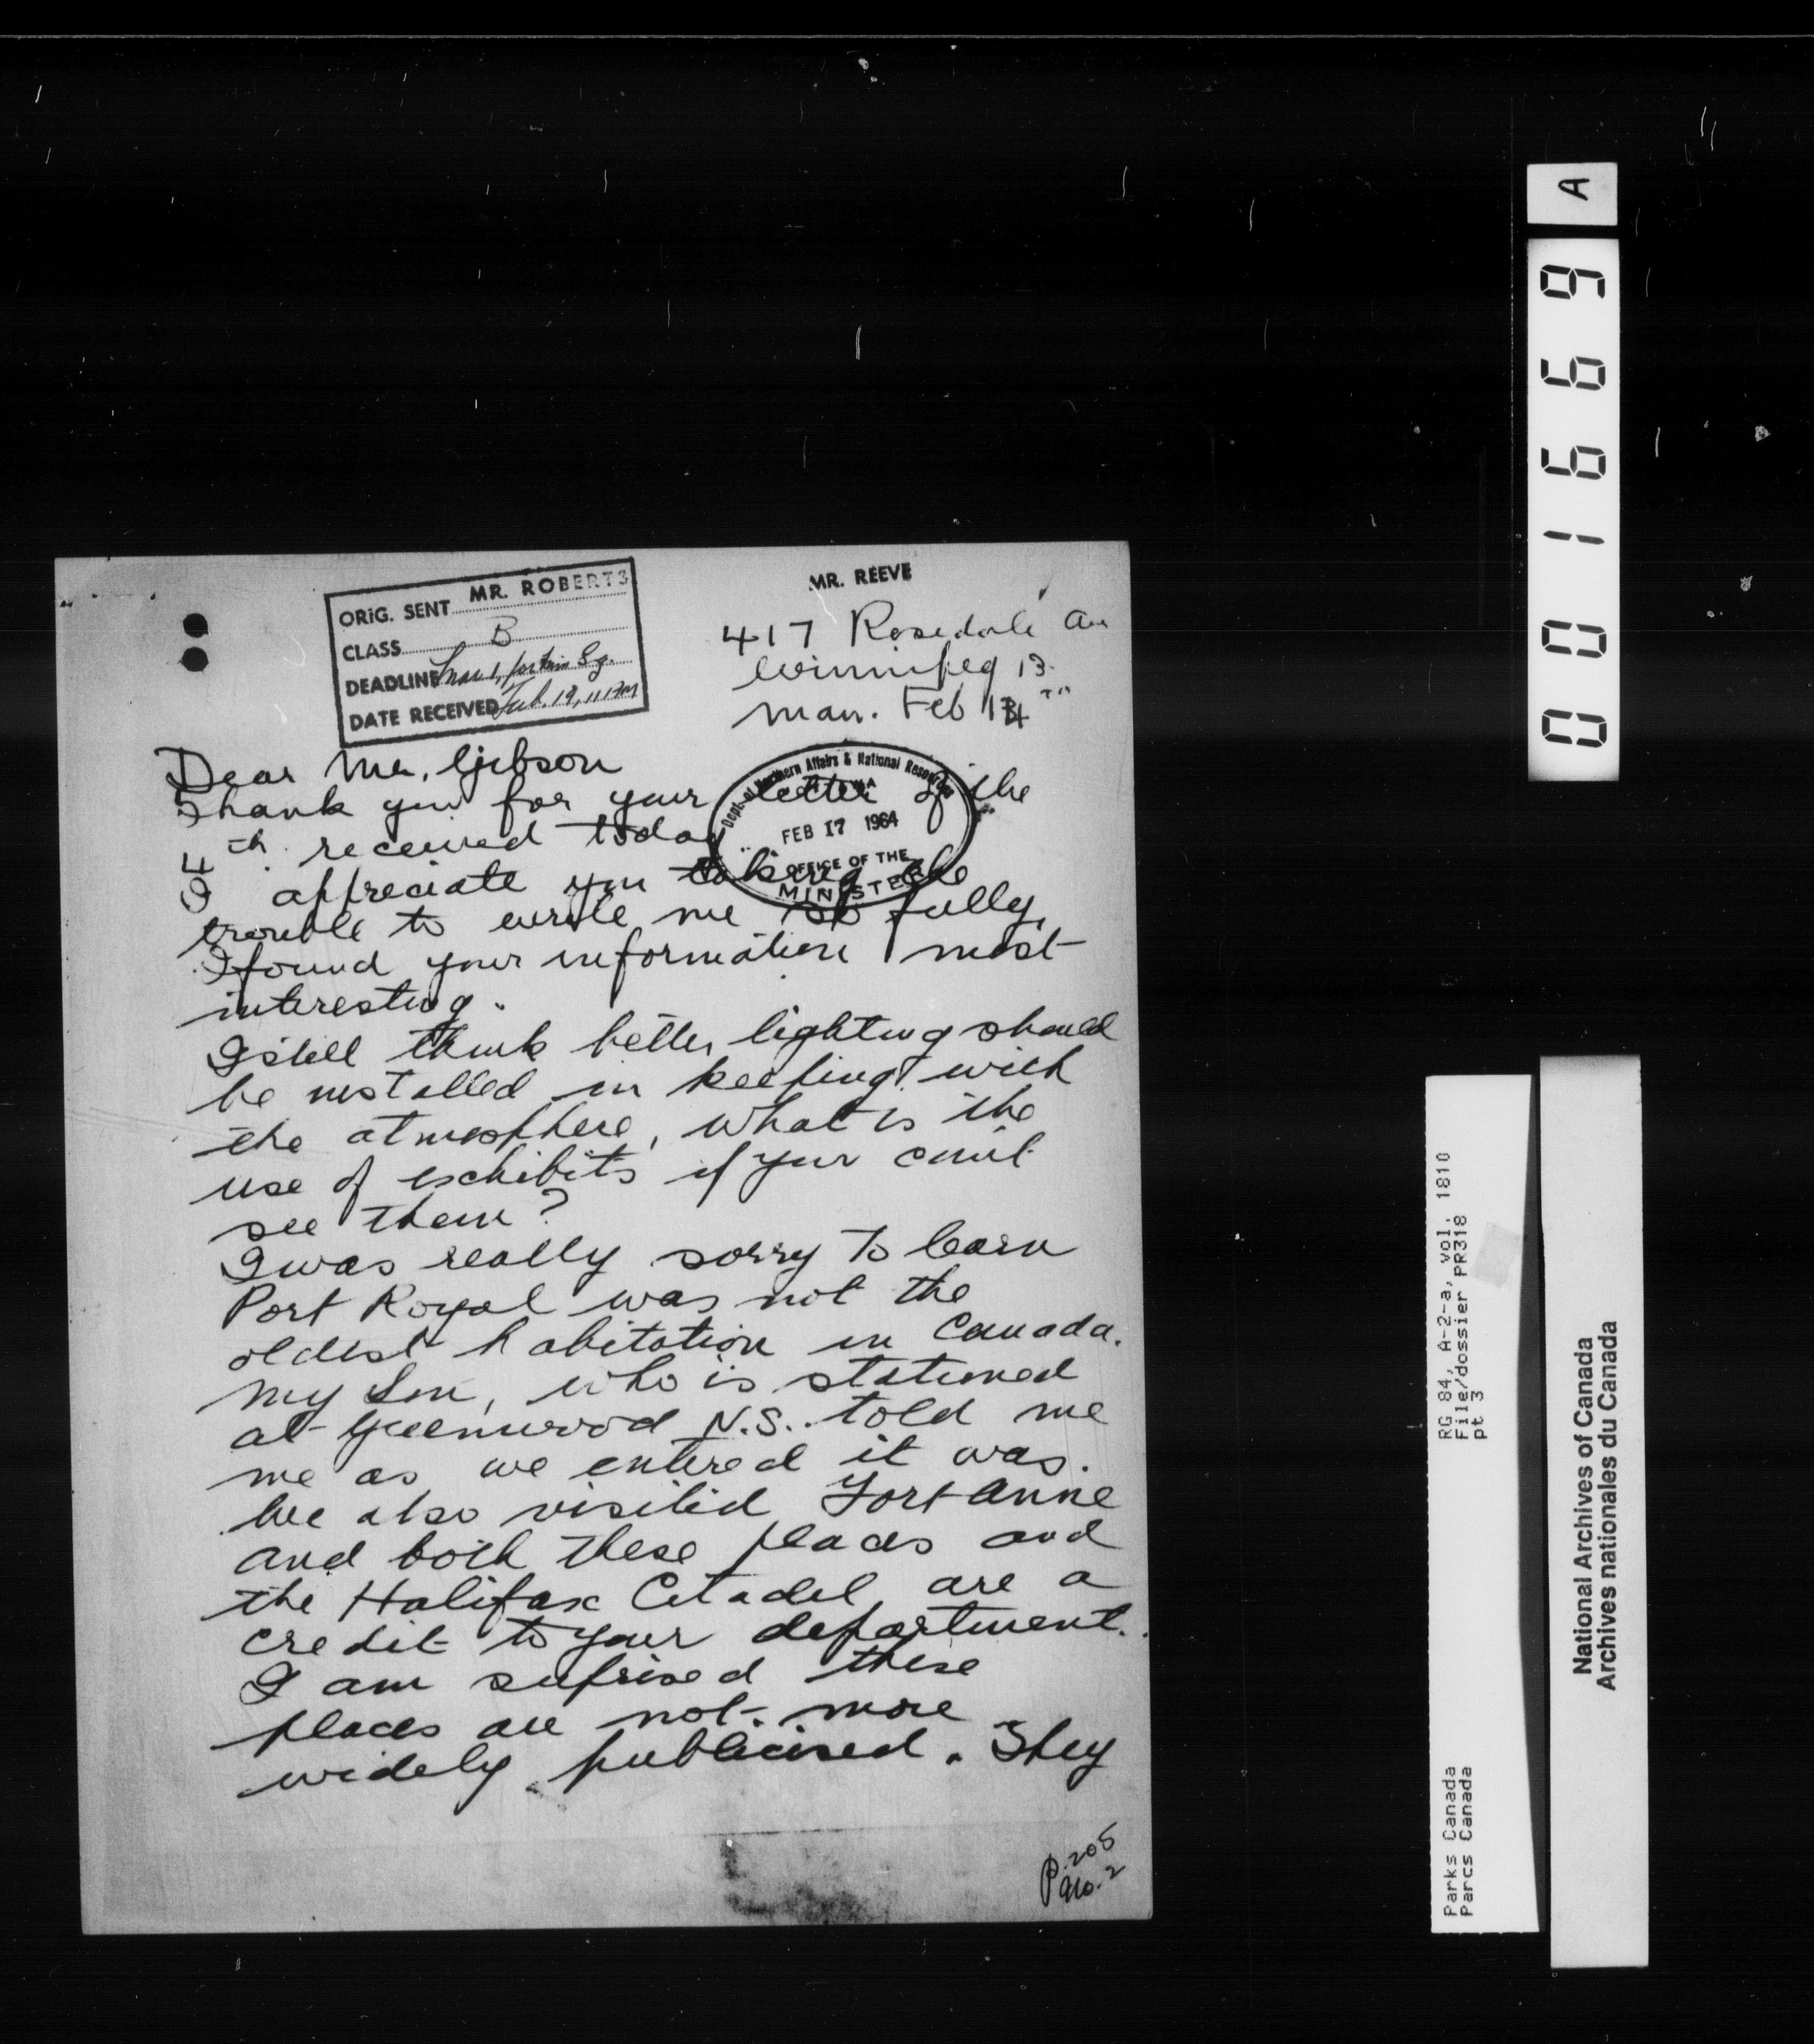 ORIG. SENT MR. ROBERTS
CLASS B
DEADLINE
DATE RECEIVED Feb. 19,
MR. REEVE
417 Rosedale Av
Winnipeg 13.
Man. Feb 14 th
Dept. of Northern Affairs & National Resources
OTTAWA
FEB 17 1964
OFFICE OF THE
MINISTER
Dear Mr. Gibson
Thank you for your letter of the
4th received today
I appreciate you taking the
trouble to write me so fully,
I found your information most
interesting.
I still think better lighting should
be installed in keeping with
the atmosphere, what is the
use of exhibits if your can't
see them?
I was really sorry to learn
Port Royal was not the
oldest habitation in Canada.
My Son, who is stationed
at Greenwood N.S. told me
me as we entered it was.
We also visited Fort Anne
and both these places and
the Halifax Citadel are a
credit to your department.
I am suprised these
places are not more
widely publicised. They
P. 205
No. 2
A
001669
RG 84, A-2-a, vol. 1810
File/dossier PR318
pt 3
Parks Canada
Parcs Canada
National Archives of Canada
Archives nationales du Canada